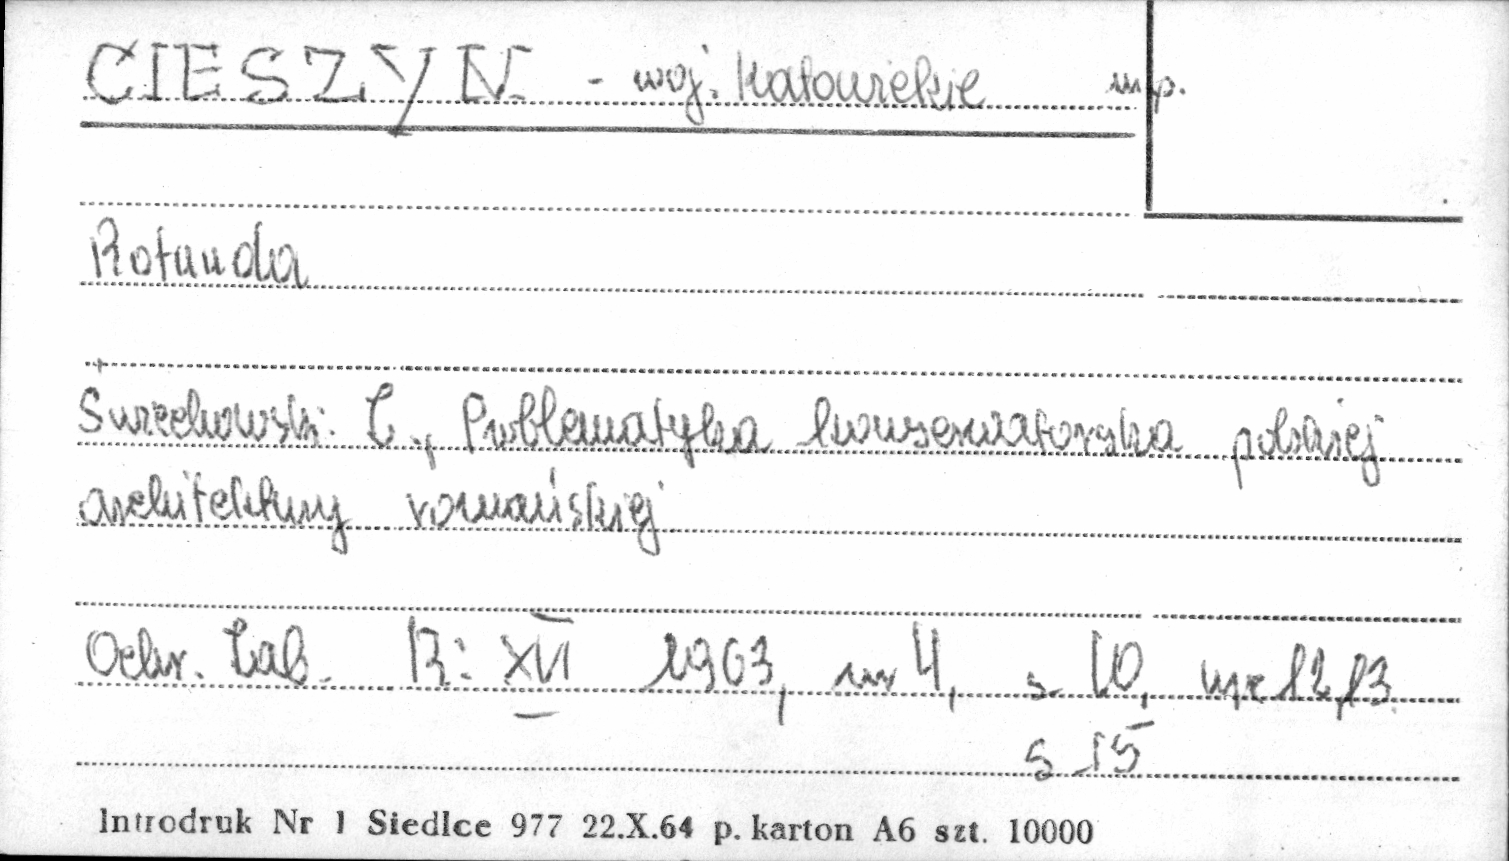 CIESZYN - woj. Katowickie m.p.
Rotunda
Świechowski Z., Problematyka konserwatorska polskiej
architektury romańskiej
Ochr. Zab. R: XVI 1963, nr 4, s 10, ryc 12, 13
s 15
Introdruk Nr 1 Siedlce 977 22.X.64 p. karton A6 szt. 10000